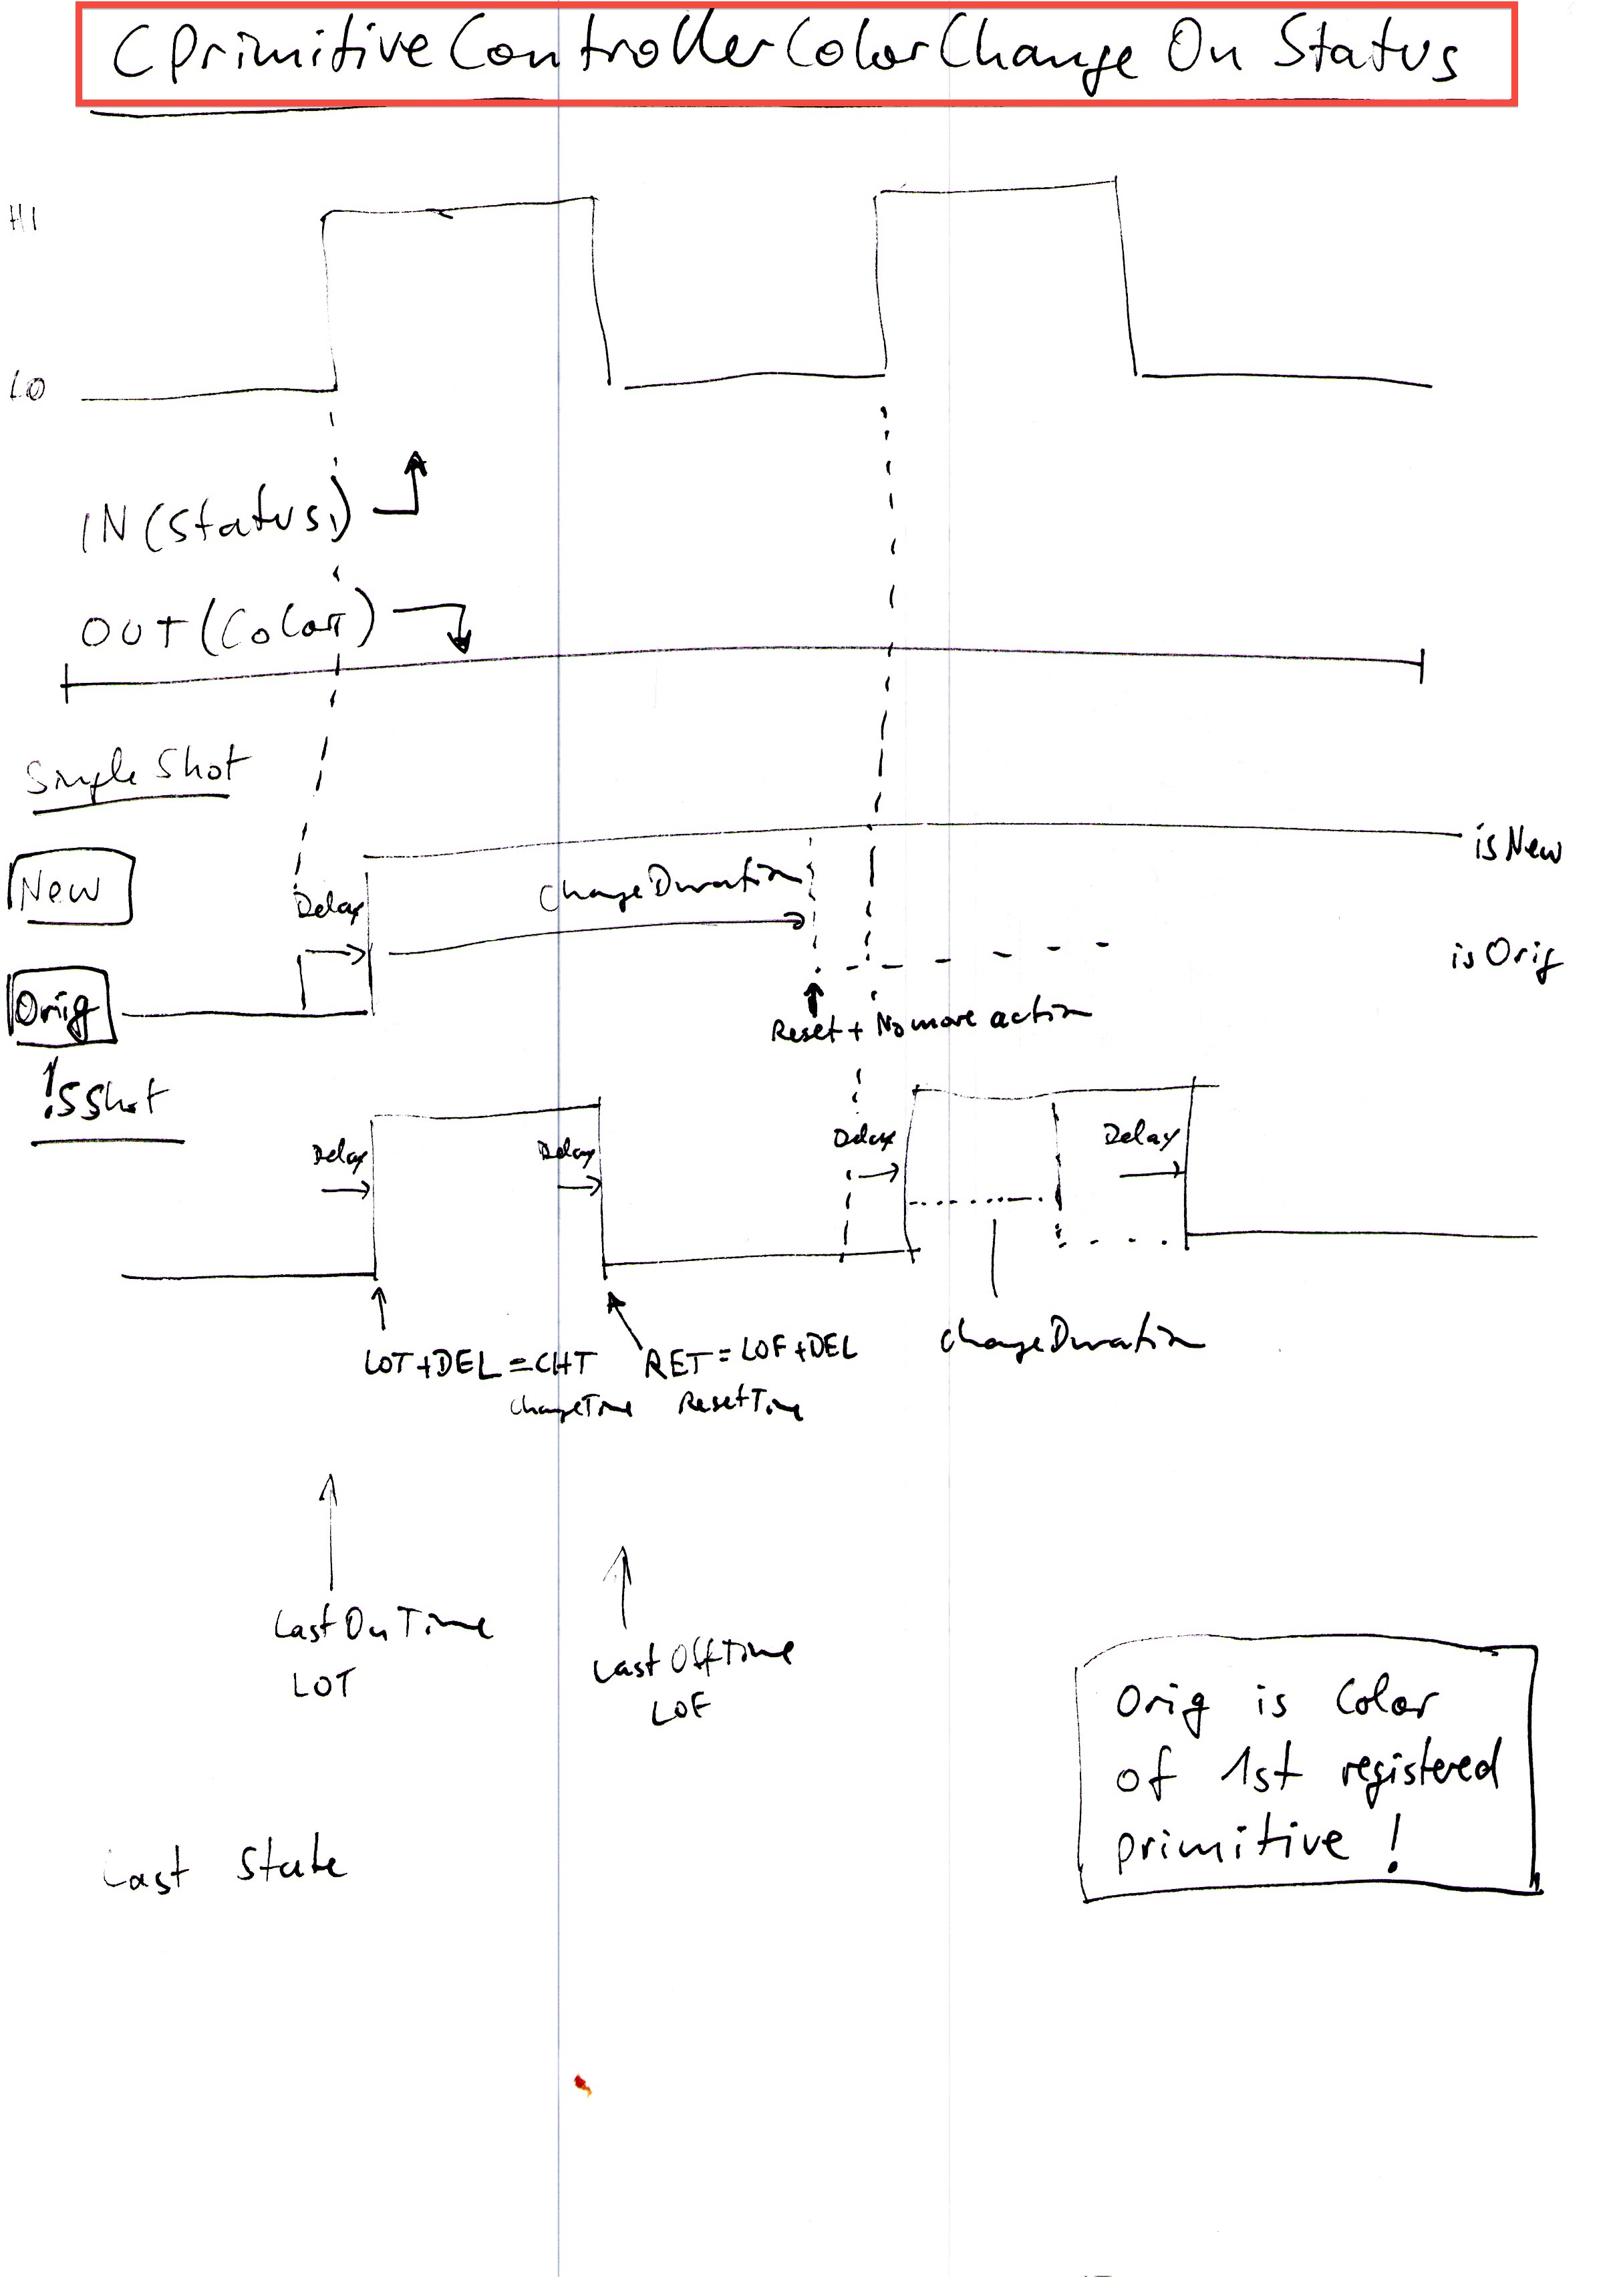 CPrimitiveControllerColorChange On Status
HI
LO
IN (Status)
OUT (Color)
Single Shot
New
Delay
changeDuration
isNew
isOrig
Orig
Reset + No more action
!SShot
Delay
Delay
Delay
Delay
changeDuration
LOT + DEL = CHT
RET = LOF + DEL
changeTime
ResetTime
Last On Time
LOT
Last OffTime
LOF
Orig is Color
of 1st registered
primitive !
Last State